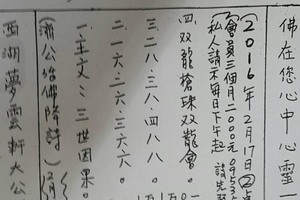 佛在您心中心靈一
2016年2月17日②点
②會員三個月二000元0953
私人請示每日下午起
四.双龍搶珠双龍會。
三.二八.三八.四八八。
二.一六.二六.三六六。
一.主文:三世因果。
(濟公活佛降詩)(2月
西湖夢雲軒大公